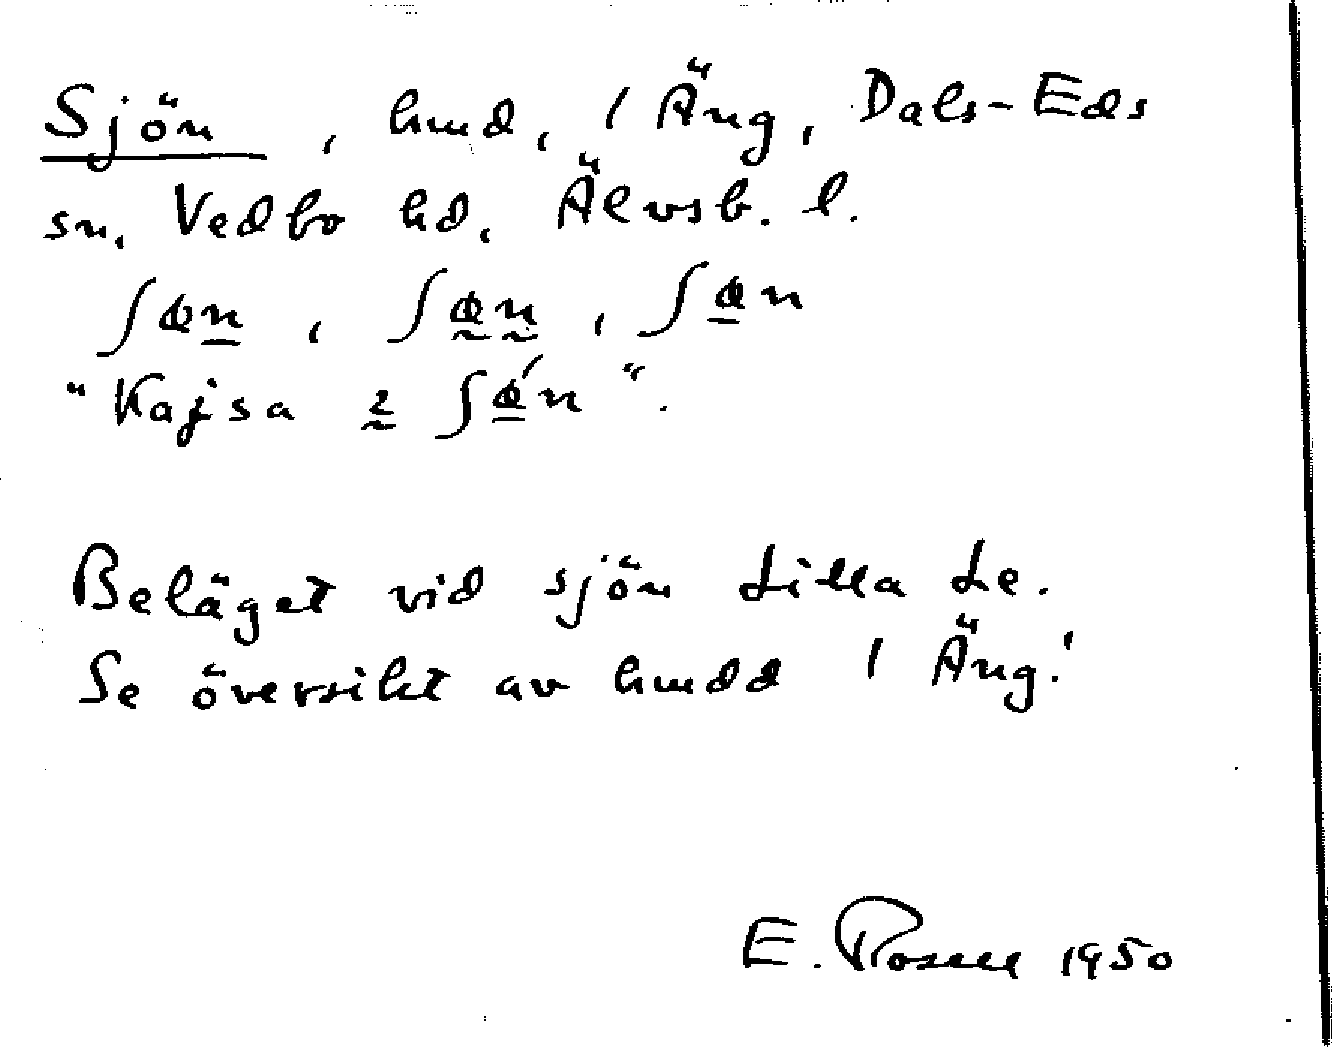 Sjön, hmd, / Äng, Dals-Eds
sn, Vedbo hd, Älvsb. l.
ʃøn, ʃøn, ʃøn
"Kajsa ʃǿn".
Beläget vid sjön Lilla Le.
Se översikt av hmdd / Äng!
E. 1950